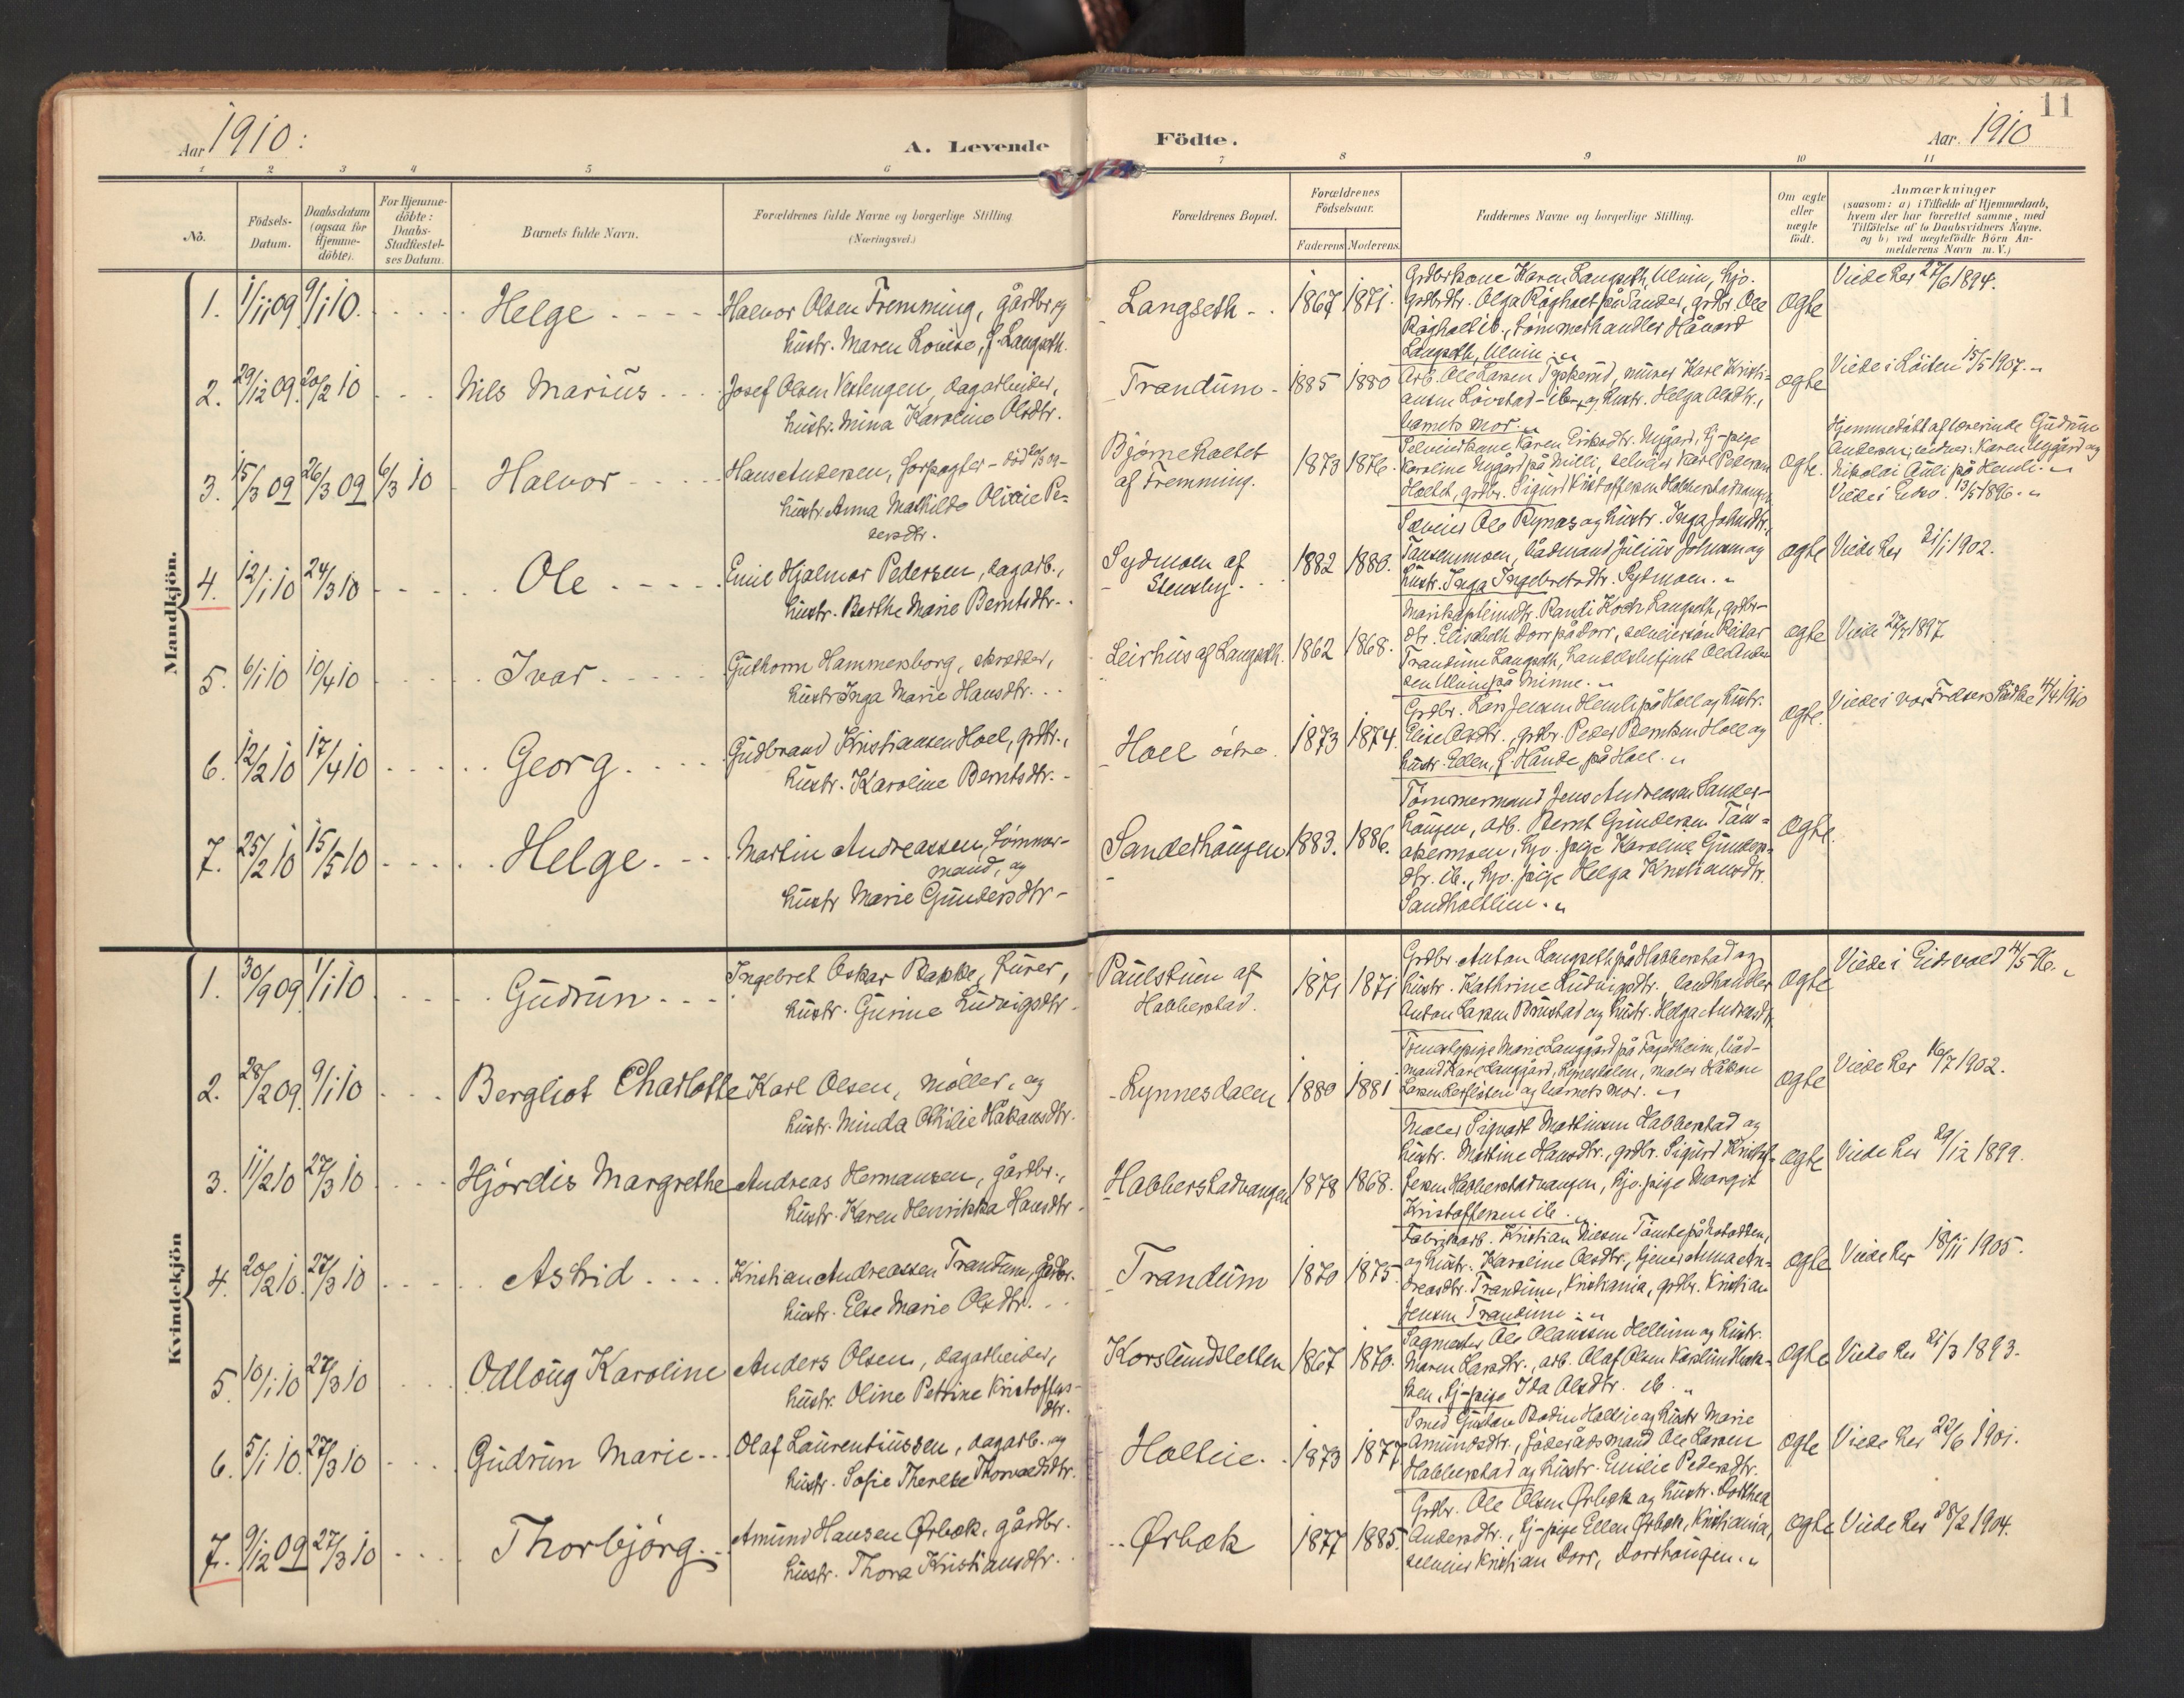 11
Aar 1910:
A. Levende
Födte.
Aar. 1910
1 2 3 4 5 6 7 8 9 10 11
No.
Födsels-
Datum.
Daabsdatum
(ogsaa for
Hjemme-
döbte).
For Hjemme-
döbte:
Daabs-
Stadfæstel-
ses Datum.
Barnets fulde Navn.
Forældrenes fulde Navne og borgerlige Stilling
(Næringsvei.)
Forældrenes Bopæl.
Forældrenes
Födselsaar.
Faderens Moderens
Faddernes Navne og borgerlige Stilling.
Om ægte
eller
uægte
födt.
Anmærkninger
(saasom: a) i Tilfælde af Hjemmedaab,
hvem der har forrettet samme, med
Tilföielse af to Daabsvidners Navne.
og b) ved uægtefödte Börn An-
melderens Navn m. V.)
Mandkjön.
1. 1/11 09 9/1 10 Helge
Halvor Olsen Fremming, gårdbr. og
hustr. Maren Lovise, f. Langseth.
Langseth 1867 1871.
Grdbrkone Karen Langseth, Ulvin, hjv.
grdbrdtr. Olga Råholt på Sander, grdbr. Ole
Råholt ib., tømmerhandler Håvard
Langseth, Ulvin
ægte
Viede her 27/6 1894.
2. 29/12 09. 20/2 10 Nils Marius
Josef Olsen Vestengen, dagarbeider,
hustr. Mina Karoline Olsdtr.
Trandum 1885 1880
Arb. Ole Larsen Tyskerud, murer Karl Kristi-
ansen Lovstad ib. og hustr. Helga Olsdtr.,
barnets mor.
ægte
Viede i Løiten 15/5 1907.
3. 15/3 09 26/3 09 6/3 10 Halvor
Hans Andersen, forpagter - død 20/3 09 -
hustr. Anna Mathilde Olixie Pe-
dersdtr.
Bjørneholtet
af Fremming.
1873 1876.
Selveierkone Karen Eriksdtr. Nygård, tj-pige
Karoline Nygård på Milli, selveier Karl Pedersen
Holtet, grdbr. Sigurd Kristoffersen Habberstadvangen
ægte.
Hjemmedøbt af lærerinde Gudrun
Andersen; vidner: Karen Nygård og
Nikolai Auli på Hemli.
Viede i Eidsv. 13/5 1896.
4. 12/1 10 24/3 10 Ole
Emil Hjalmar Pedersen, dagarb.,
hustr. Berthe Marie Berntsdtr.
Sydmoen af
Stensby.
1882 1880.
Selveier Ole Rynæs og hustr. Inga Johnsdtr.,
Tansenmoen, bådmand Julius Johnsen og
hustr. Inga Ingebretsdtr. Sydmoen.
ægte
Viede her 21/1 1902.
5. 6/1 10 10/4 10 Ivar
Guthorm Hammersborg, skrædder,
hustr. Inga Marie Hansdtr.
Leirhus af Langseth. 1862 1868.
Randi Koch Langseth, grdbr-
dtr. Elisabeth Dorr på Dorr, selveiersøn Reidar
Trandum Langseth, handelsbetjent Ole Ander-
sen Ulvin på Minne.
ægte
Viede 27/7 1897
6. 12/2 10 17/4 10 Georg
Gudbrand Kristiansen Hoel, grdbr.,
hustr. Karoline Berntsdtr.
Hoel østre. 1873 1874.
Grdbr. Lars Jensen Hemli på Hoel og hustr.
Elise Olsdtr., grdbr. Peder Berntsen Hoel og
hustr. Ellen, f. Hånde, på Hoel.
ægte.
Viede i Vor Frelsers Kirke 4/4 1910
7. 25/2 10 15/5 10 Helge
Martin Andreassen, tømmer-
mand, og
hustr. Marie Gundersdtr
Sanderhaugen 1883. 1886.
Tømmermand Jens Andreasen Sander-
haugen, arb. Bernt Gundersen Tøm-
akermoen, hjv. pige Karoline Gunders-
dtr. ib., hjv. pige Helga Kristiansdtr.
Sandholtlien.
ægte.
Kvindekjön
1. 30/9 09 1/1 10 Gudrun
Ingebret Oskar Bakke, snekker,
hustr. Gurine Ludvigsdtr.
Paulstuen af
Habberstad.
1871 1871
Grdbr. Anton Langseth på Habberstad og
hustr. Kathrine Ludvigsdtr. landhandler
Anton Larsen Brustad og hustr. Helga Andreasdtr.
ægte
Viede i Eidsvold 4/5 96.
2. 28/12 09. 9/1 10 Bergliot Charlotte
Karl Olsen, møller, og
hustr. Minda Othilie Håkansdtr.
Rynnesdalen 1880 1881
Marie Langgård på Fagerheim, båd-
mand Karl Langgård, Rynesdalen, maler Håkon
og barnets mor.
ægte
Viede her 16/7 1902.
3. 11/2 10 27/3 10 Hjördis Margrethe
Andreas Hermansen, gårdbr.,
hustr. Karen Henrikka Hansdtr.
Habberstadvangen 1878 1868.
Maler Sigvart Martinsen Habberstad og
hustr. Martine Hansdtr., grdbr. Sigurd Kristof-
fersen Habberstadvangen, hjv. pige Margit
Kristoffersen ib.
ægte
Viede her 29/12 1899.
4. 20/2 10. 27/3 10 Astrid
Kristian Andreassen Trandum, gårdbr.
hustr. Else Marie Olsdtr.
Trandum 1870 1875.
Fabrikarb. Kristian Nilsen Tømte på Notodden,
og hustr. Karoline Olsdtr., tjener Anna An-
dreasdtr. Trandum, Kristiania, grdbr. Kristian
Jensen Trandum.
ægte
Viede her 18/11 1905.
5. 10/1 10 27/3 10 Odloug Karoline
Anders Olsen, dagarbeider,
hustr. Oline Petrine Kristoffers-
dtr.
Korslundsletten 1867 1870.
Sagmester Ole Olaussen Hellum og hustr.
Maren Larsdtr., arb. Olaf Olsen Korslundbak-
ken, tj-pige Ida Olsdtr. ib.
ægte
Viede her 21/3 1893.
6. 5/1 10. 27/3 10 Gudrun Marie
Olaf Laurentiussen, dagarb. og
hustr. Sofie Therese Thorvaldsdtr.
Holteie. 1873 1877.
Smed Gustav Bodin Holteie og hustr. Marie
Amundsdtr., føderådsmand Ole Larsen
Habberstad og hustr. Emilie Pedersdtr.
ægte
Viede her 22/6 1901.
7. 9/12 09 27/3 10 Thorbjörg
Amund Hansen Ørbæk, gårdbr.
hustr. Thora Kristiansdtr.
Ørbæk 1877 1885.
Grdbr. Ole Olsen Ørbæk og hustr. Dorthea
Andersdtr., tj-pige Ellen Ørbæk, Kristiania,
selveier Kristian Dorr, Dorrhaugen.
ægte
Viede her 28/2 1904.